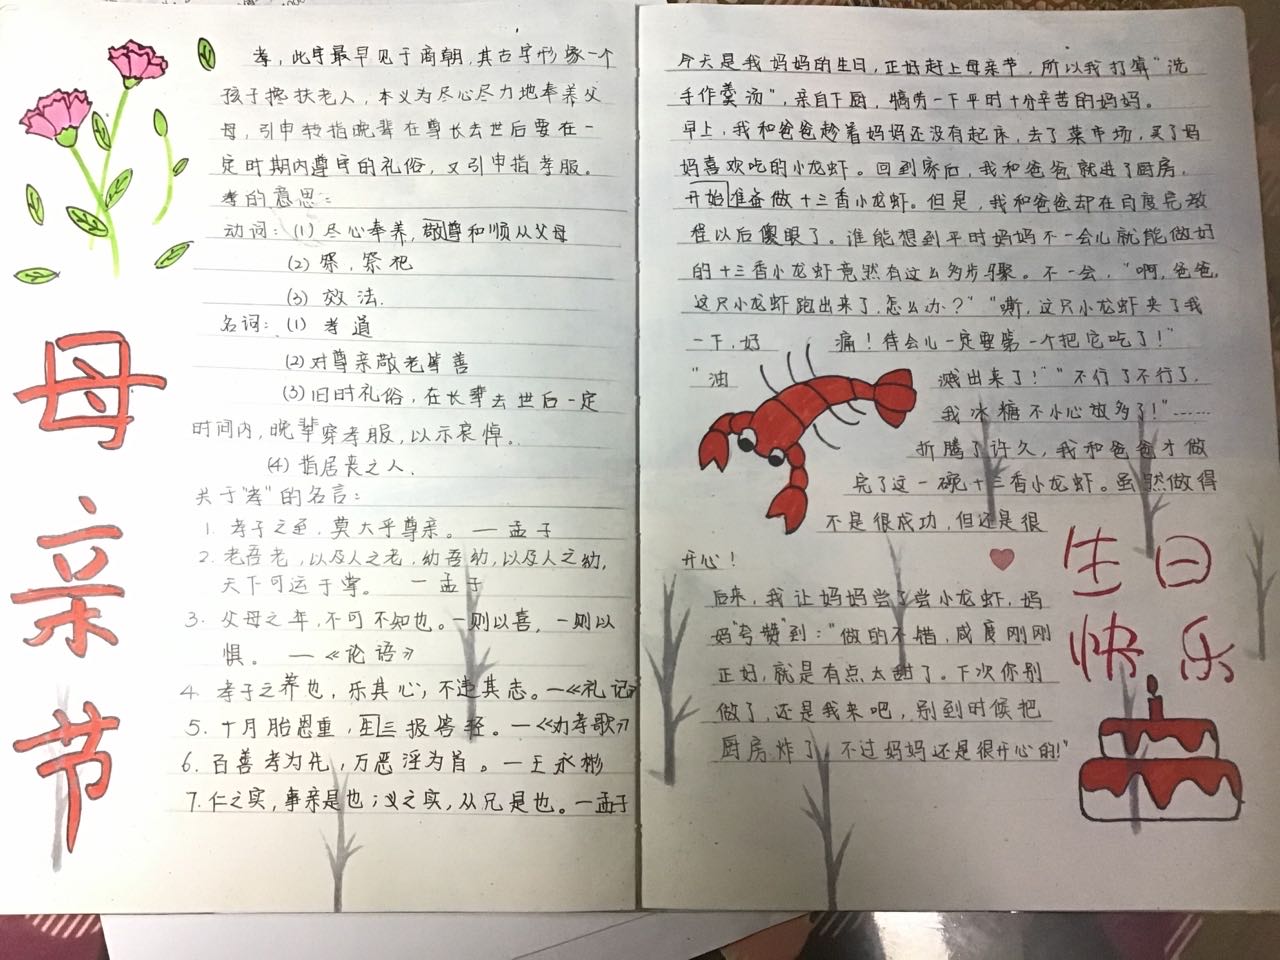 母亲节
孝，此字最早见于商朝，其古字形像一个
孩子搀扶老人，本义为尽心尽力地奉养父
母，引申转指晚辈在尊长去世后要在一
定时期内遵守的礼俗，又引申指孝服。
孝的意思：
动词：(1) 尽心奉养，敬尊和顺从父母
(2) 祭，祭祀
(3) 效法.
名词：(1) 孝道
(2) 对尊亲敬老等善
(3) 旧时礼俗，在长辈去世后一定
时间内，晚辈穿孝服，以示哀悼。
(4) 指居丧之人.
关于"孝"的名言：
1. 孝子之至，莫大乎尊亲。—孟子
2. 老吾老，以及人之老，幼吾幼，以及人之幼，
天下可运于掌。 —孟子
3. 父母之年，不可不知也。一则以喜，一则以
惧。 —《论语》
4. 孝子之养也，乐其心，不违其志。—《礼记》
5. 十月胎恩重，生三报答轻。—《劝孝歌》
6. 百善孝为先，万恶淫为首。—王永彬
7. 仁之实，事亲是也；义之实，从兄是也。—孟子
今天是我妈妈的生日，正好赶上母亲节，所以我打算"洗
手作羹汤"，亲自下厨，犒劳一下平时十分辛苦的妈妈。
早上，我和爸爸趁着妈妈还没有起床，去了菜市场，买了妈
妈喜欢吃的小龙虾。回到家后，我和爸爸就进了厨房，
开始准备做十三香小龙虾。但是，我和爸爸却在百度完教
程以后傻眼了。谁能想到平时妈妈不一会儿就能做好
的十三香小龙虾竟然有这么多步骤。不一会，"啊，爸爸，
这只小龙虾跑出来了，怎么办？""嘶，这只小龙虾夹了我
一下，好痛！待会儿一定要第一个把它吃了！"
"油溅出来了！""不行了不行了，
我冰糖不小心放多了！"……
折腾了许久，我和爸爸才做
完了这一碗十三香小龙虾。虽然做得
不是很成功，但还是很
开心！
后来，我让妈妈尝了尝小龙虾，妈
妈"夸赞"到："做的不错，咸度刚刚
正好，就是有点太甜了。下次你别
做了，还是我来吧，别到时候把
厨房炸了，不过妈妈还是很开心的！"
生日
快乐